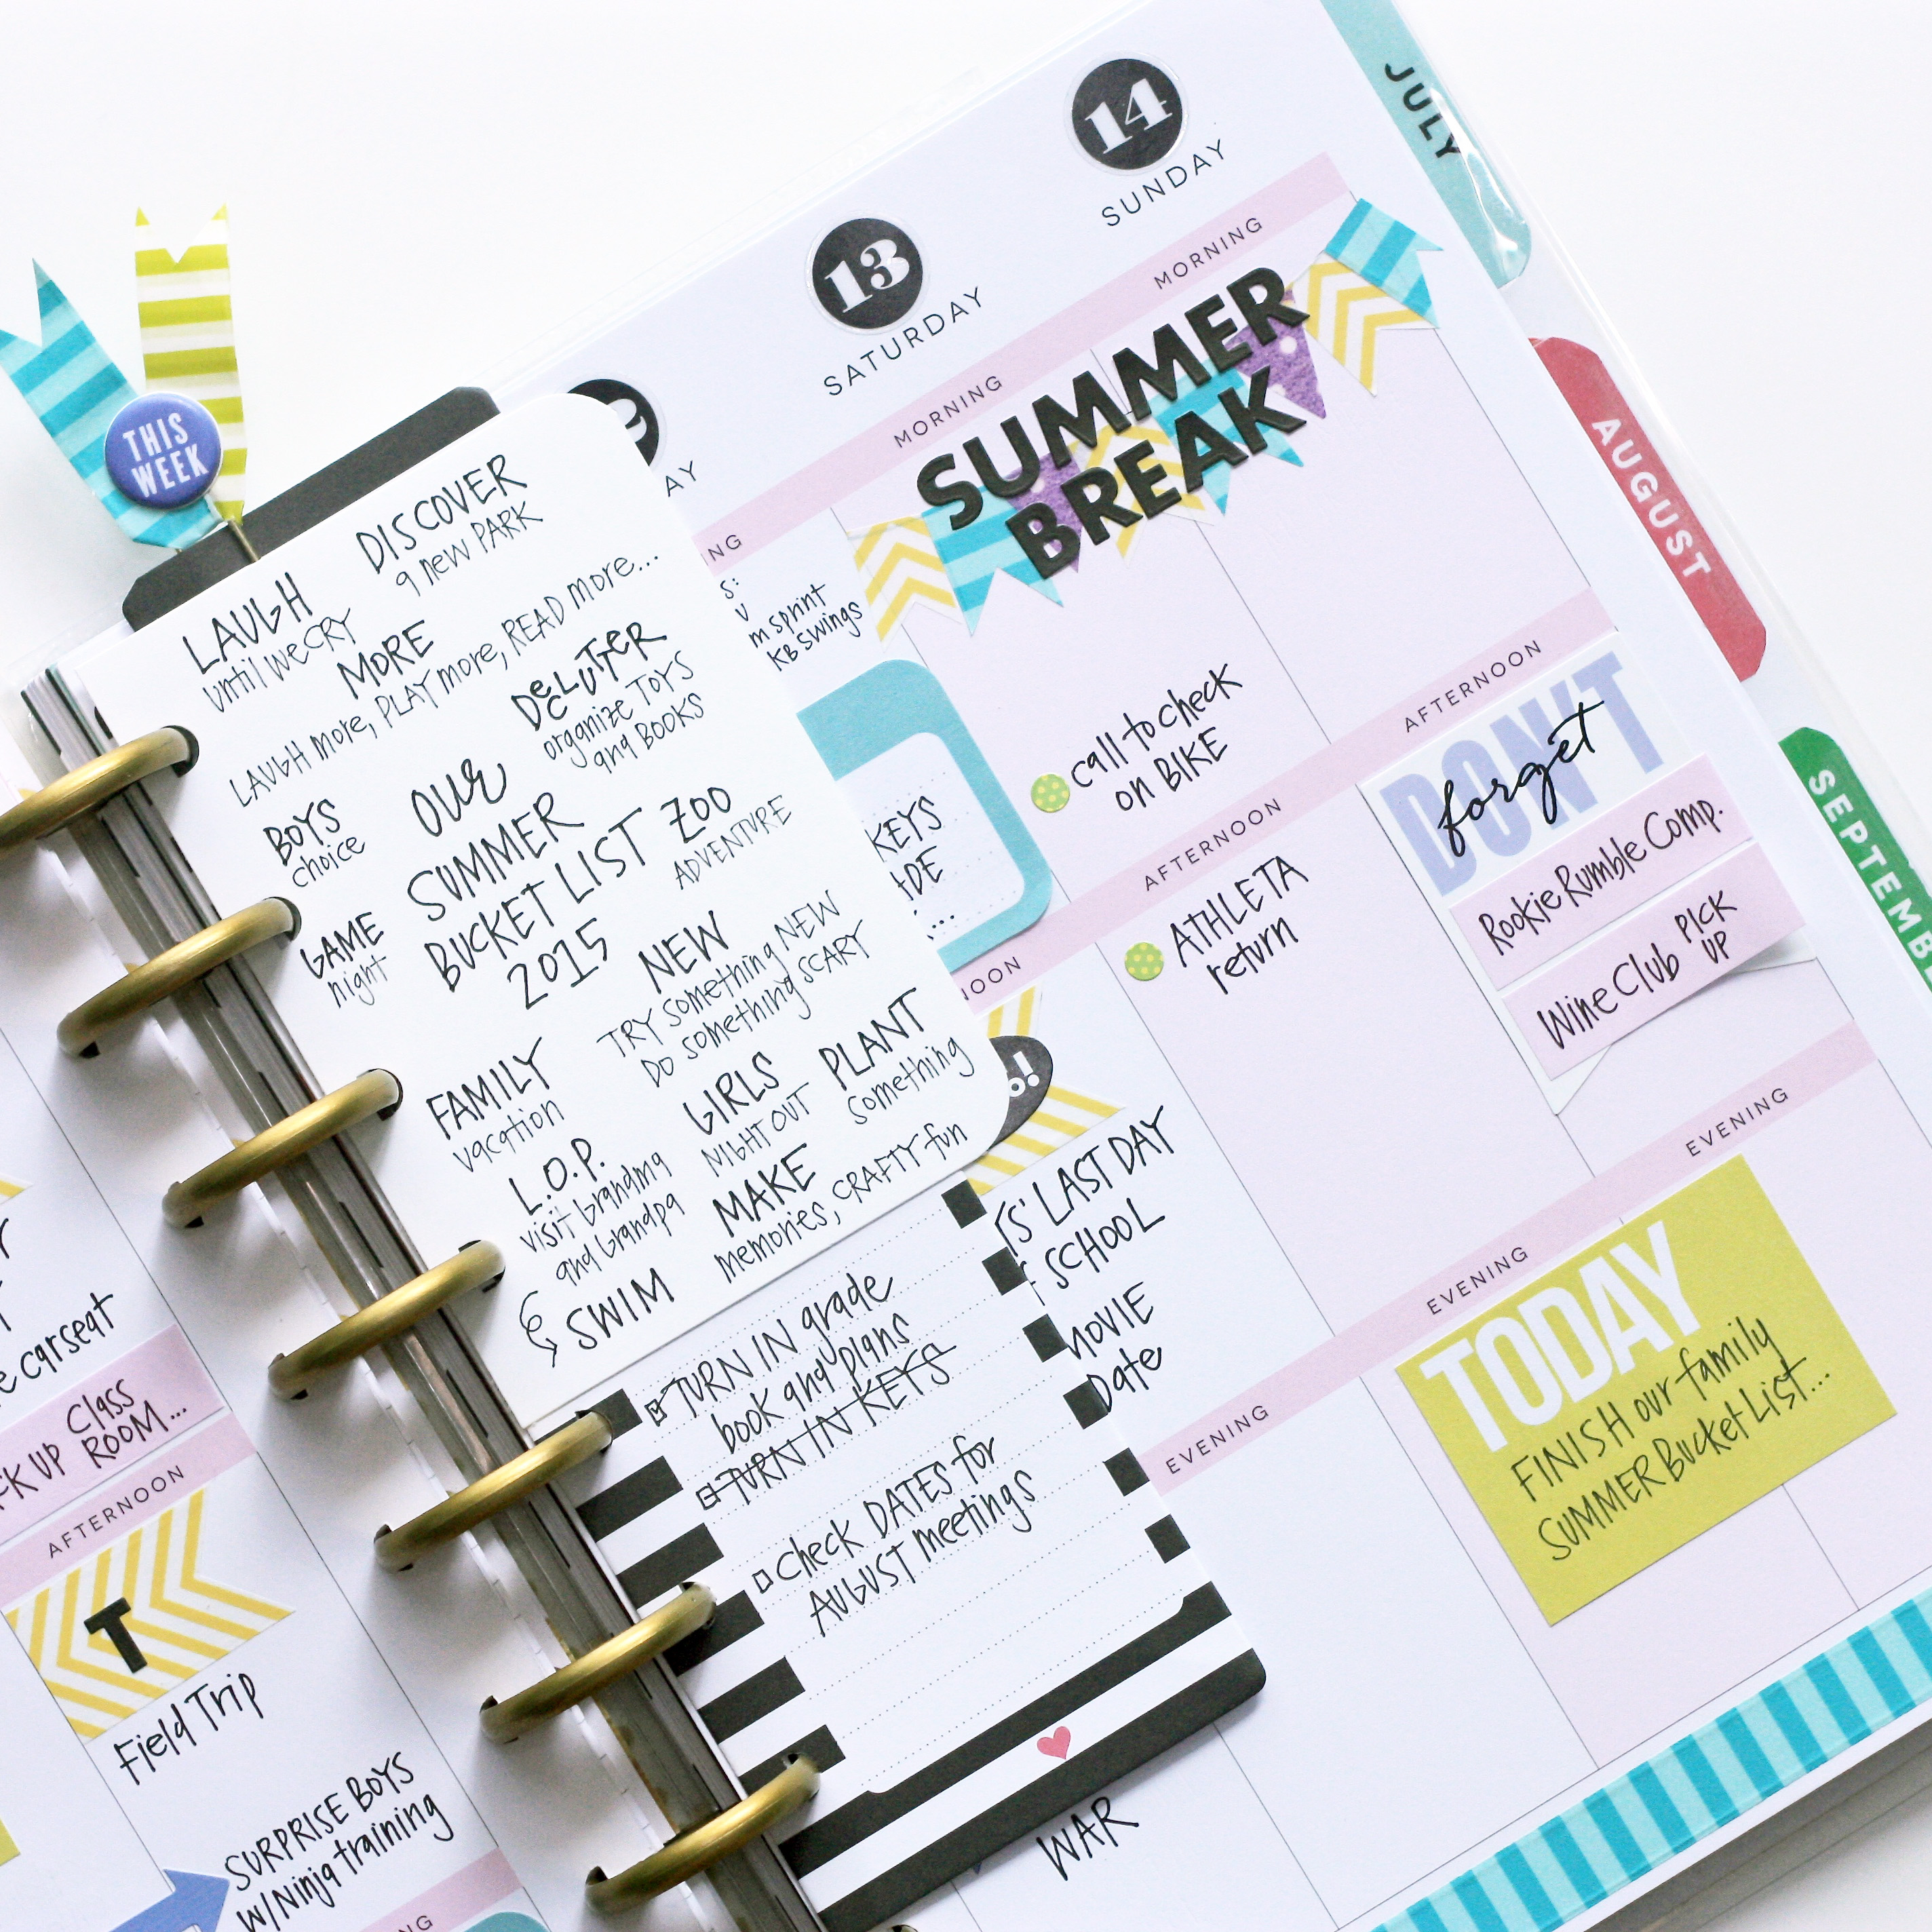 THIS
WEEK
DISCOVER
a new PARK
LAUGH
until we CRY
MORE
LAUGH more, PLAY more, READ more...
DeCLUTTeR
organize TOYS
and BOOKS
BOYS
choice
our
SUMMER
BUCKET LIST
2015
ZOO
ADVENTURE
GAME
night
NEW
TRY something NEW
DO something SCARY
FAMILY
vacation
GIRLS
NIGHT OUT
PLANT
something
L.O.P.
visit Grandma
and Grandpa
MAKE
memories, CRAFTY fun
SWIM
TURN IN grade
book and plans
TURN IN KEYS
Check DATES for
AUGUST meetings
AY
NG
S:
V
m sprint
KB swings
KEYS
ADE
...
NOON
o!
TS' LAST DAY
SCHOOL
MOVIE
Date
EVENING
WAR
13
SATURDAY
MORNING
SUMMER
BREAK
call to check
on BIKE
AFTERNOON
ATHLETA
return
EVENING
14
SUNDAY
MORNING
AFTERNOON
DON'T
forget
Rookie Rumble Comp.
Wine Club PICK
UP
EVENING
TODAY
FINISH our family
SUMMER Bucket List...
JULY
AUGUST
SEPTEMBE
e carseat
CK UP Class
ROOM...
AFTERNOON
T
Field Trip
SURPRISE BOYS
w/Ninja training
NG